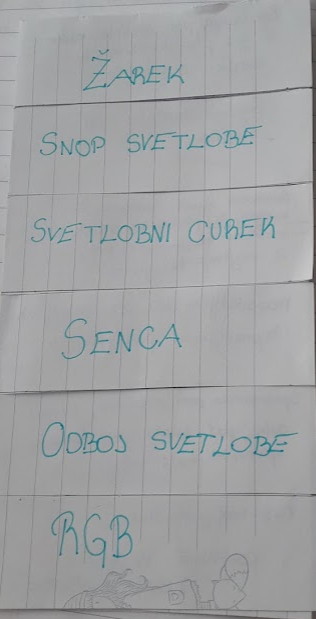 ŽAREK
SNOP SVETLOBE
SVETLOBNI CUREK
SENCA
ODBOJ SVETLOBE
RGB
D